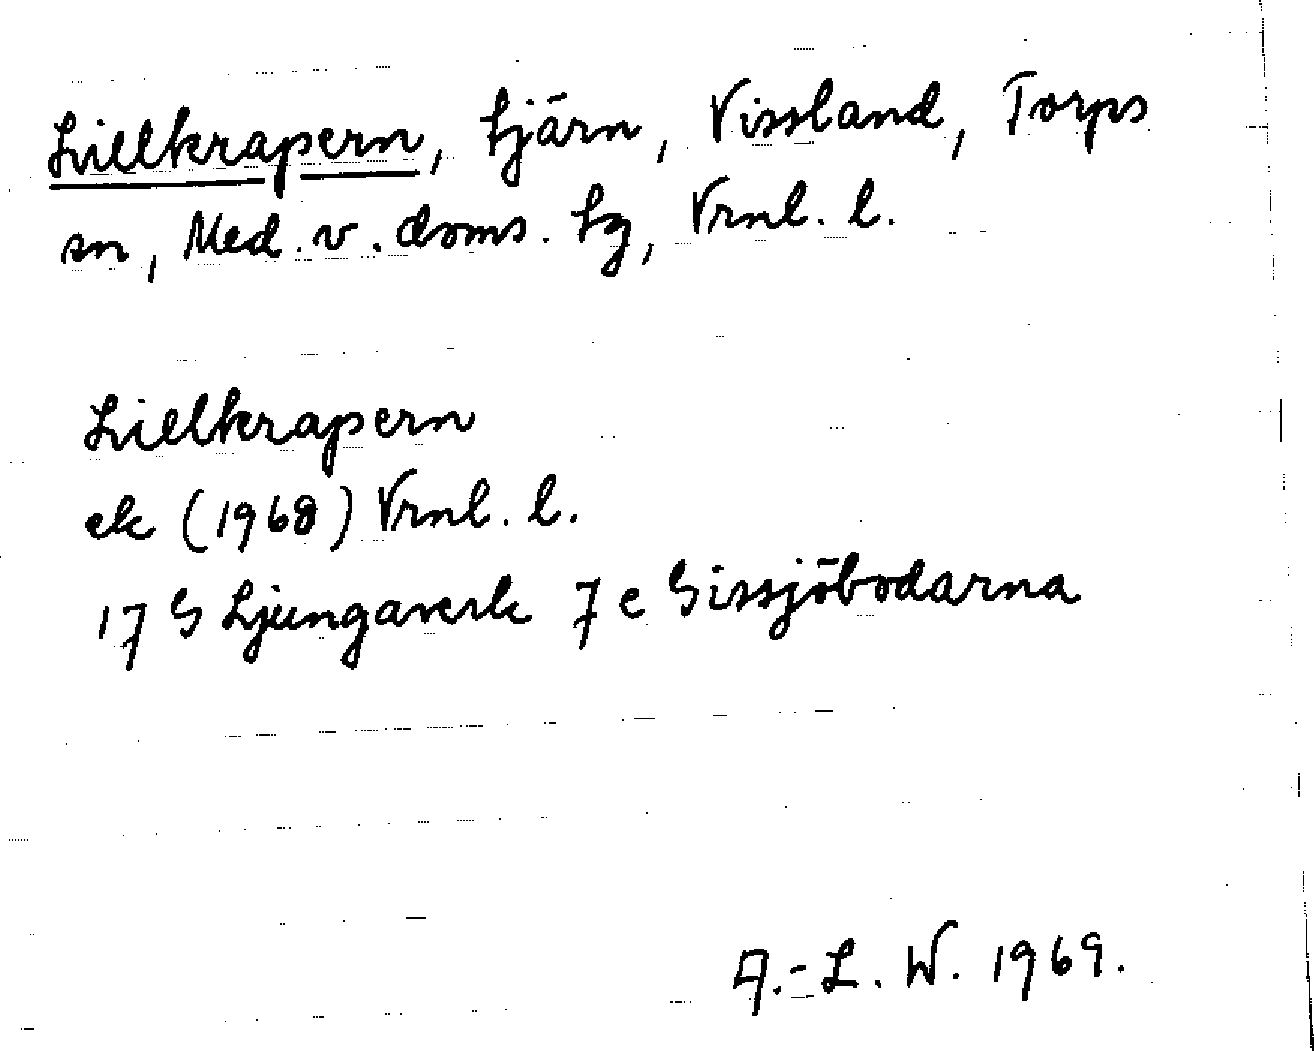 Lillkrapern, tjärn, Vissland, Torps
sn, Med. v. doms. tg, Vrnl. l.
Lillkrapern
ek (1968) Vrnl. l.
17 G Ljungaverk 7 e Gissjöbodarna
A.-L. W. 1969.